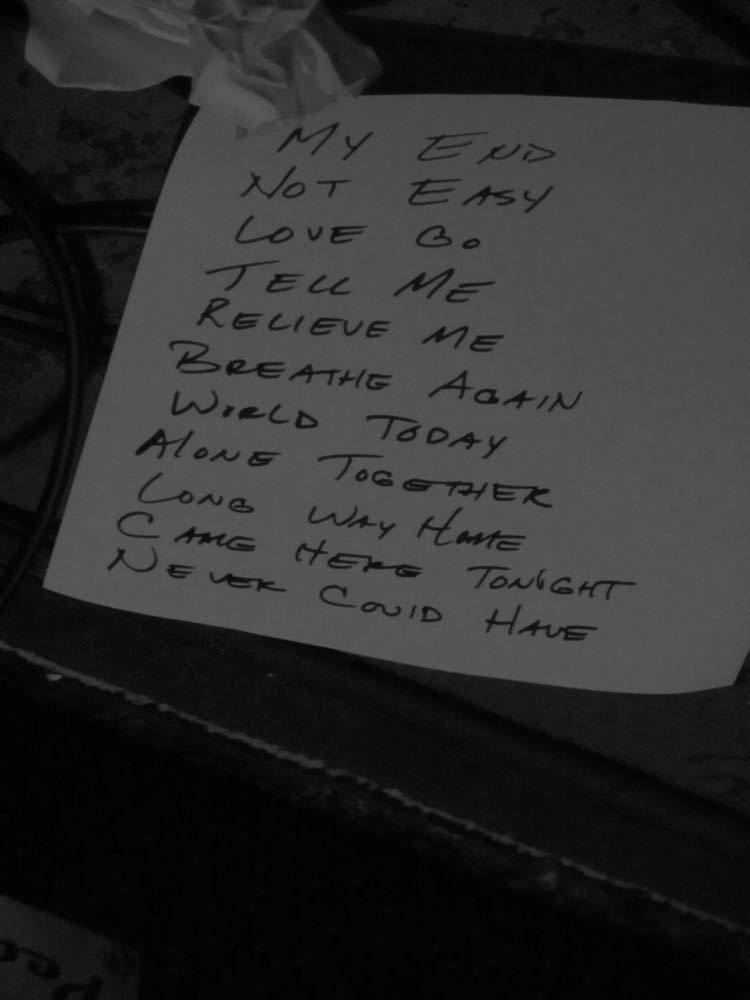 MY END
NOT EASY
LOVE GO
TELL ME
RELIEVE ME
BREATHE AGAIN
WORLD TODAY
ALONE TOGETHER
LONG WAY HOME
CAME HERE TONIGHT
NEVER COULD HAVE